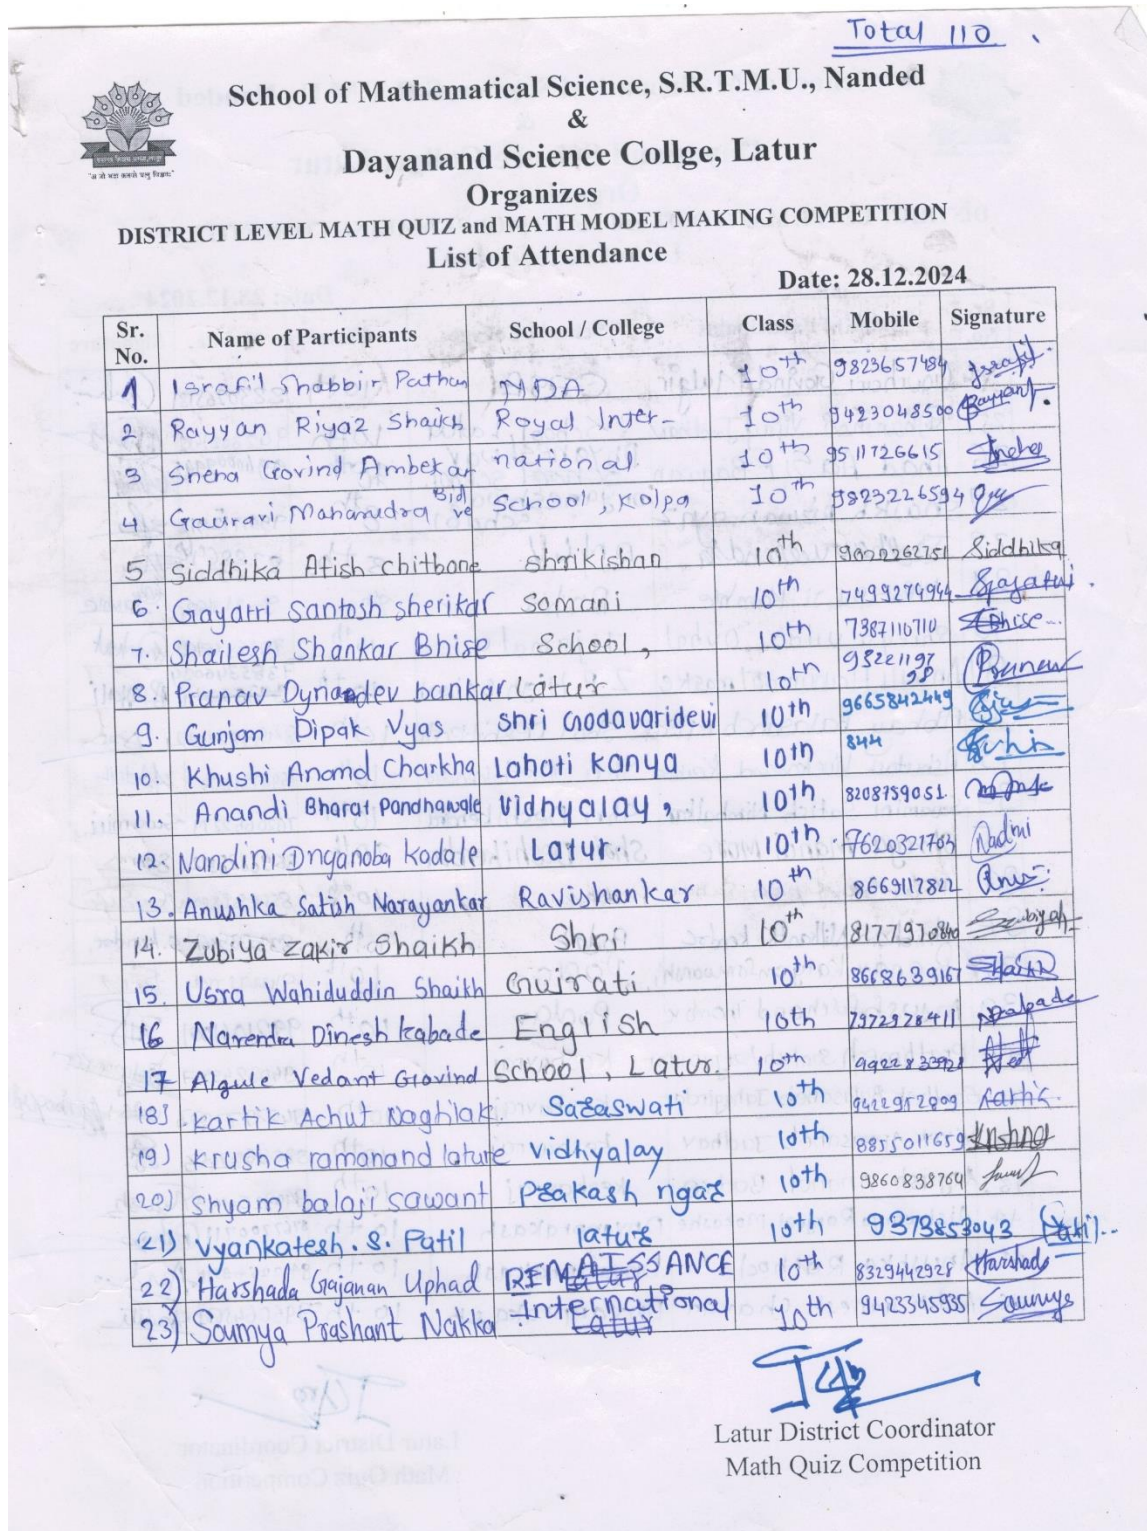 Total 110
School of Mathematical Science, S.R.T.M.U., Nanded
&
Dayanand Science Collge, Latur
Organizes
DISTRICT LEVEL MATH QUIZ and MATH MODEL MAKING COMPETITION
List of Attendance
Date: 28.12.2024
Sr. No. Name of Participants School / College Class Mobile Signature
1 Israfil Shabbir Pathan NDA 10th 9823657484
2 Rayyan Riyaz Shaikh Royal Inter- 10th 9423048500
3 Sneha Govind Ambekar national 10th 9511726615 Sneha
4 Gaurari Maharudra Bidve School, Kolpa 10th 9823226594
5 Siddhika Atish Chitbone Shrikishan 10th Siddhika
6. Gayatri Santosh Sherikar Somani 10th 7499274944
7. Shailesh Shankar Bhise School, 10th 7387110710 Bhise
8. Pranav Dynandev bankar Latur 10th Pranav
9. Gunjam Dipak Vyas Shri Godavaridevi 10th 9665842449
10. Khushi Anand Charkha Lahoti Kanya 10th 844
11. Anandi Bharat Pandhawale Vidhyalay, 10th 8208759051
12. Nandini Dnyanoba Kodale Latur 10th 7620321763
13. Anushka Satish Narayankar Ravishankar 10th 8669117822
14. Zubiya Zakir Shaikh Shri 10th Zubiyah
15. Usra Wahiduddin Shaikh Gujrati 10th 8668639167
16 Narendra Dinesh Kabade English 10th 7972978411
17 Algule Vedant Govind School, Latur. 10th
18) Kartik Achut Naghilaki Saraswati 10th 9422952899 Kartik
19) Krusha ramanand lature Vidhyalay 10th 8855011659 Krishna
20) Shyam balaji sawant Prakash ngar 10th 9860838764
21) Vyankatesh. S. Patil latur 10th 9373853043
22) Harshada Gajanan Uphad RENAISSANCE 10th 8329442928 Harshada
23) Soumya Prashant Nakka International 10th 9423345935 Soumya
Latur District Coordinator
Math Quiz Competition